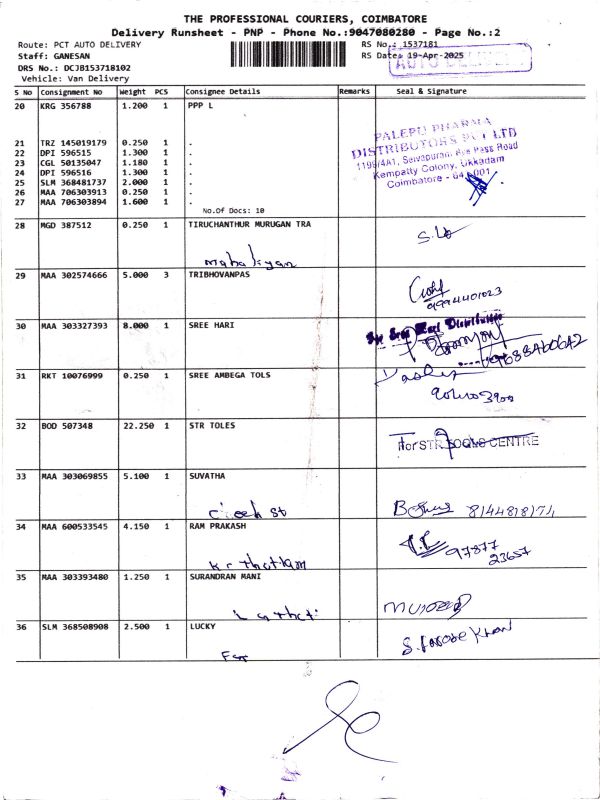 THE PROFESSIONAL COURIERS, COIMBATORE
Delivery Runsheet - PNP - Phone No.:9047080280 - Page No.:2
Route: PCT AUTO DELIVERY RS No.: 1537181
Staff: GANESAN RS Date: 19-Apr-2025
AUTO DELIVERY
DRS No.: DCJB153718102
Vehicle: Van Delivery
S No Consignment No Weight PCS Consignee Details Remarks Seal & Signature
20 KRG 356788 1.200 1 PPP L
21 TRZ 145019179 0.250 1 .
22 DPI 596515 1.300 1 .
23 CGL 50135047 1.180 1 .
24 DPI 596516 1.300 1 .
25 SLM 368481737 2.000 1 .
26 MAA 706303913 0.250 1 .
27 MAA 706303894 1.600 1 .
No.Of Docs: 10
PALEPU PHARMA
DISTRIBUTORS PVT LTD
1199/4A1, Selvapuram Bye Pass Road
Kempatty Colony, Ukkadam
Coimbatore - 641 001
28 MGD 387512 0.250 1 TIRUCHANTHUR MURUGAN TRA
29 MAA 302574666 5.000 3 TRIBHOVANPAS
9994401023
30 MAA 303327393 8.000 1 SREE HARI
For Sree Hari Distributor
31 RKT 10076999 0.250 1 SREE AMBEGA TOLS
32 BOD 507348 22.250 1 STR TOLES
For STR TOOLS CENTRE
33 MAA 303069855 5.100 1 SUVATHA
34 MAA 600533545 4.150 1 RAM PRAKASH
97877
23657
35 MAA 303393480 1.250 1 SURANDRAN MANI
36 SLM 368508908 2.500 1 LUCKY